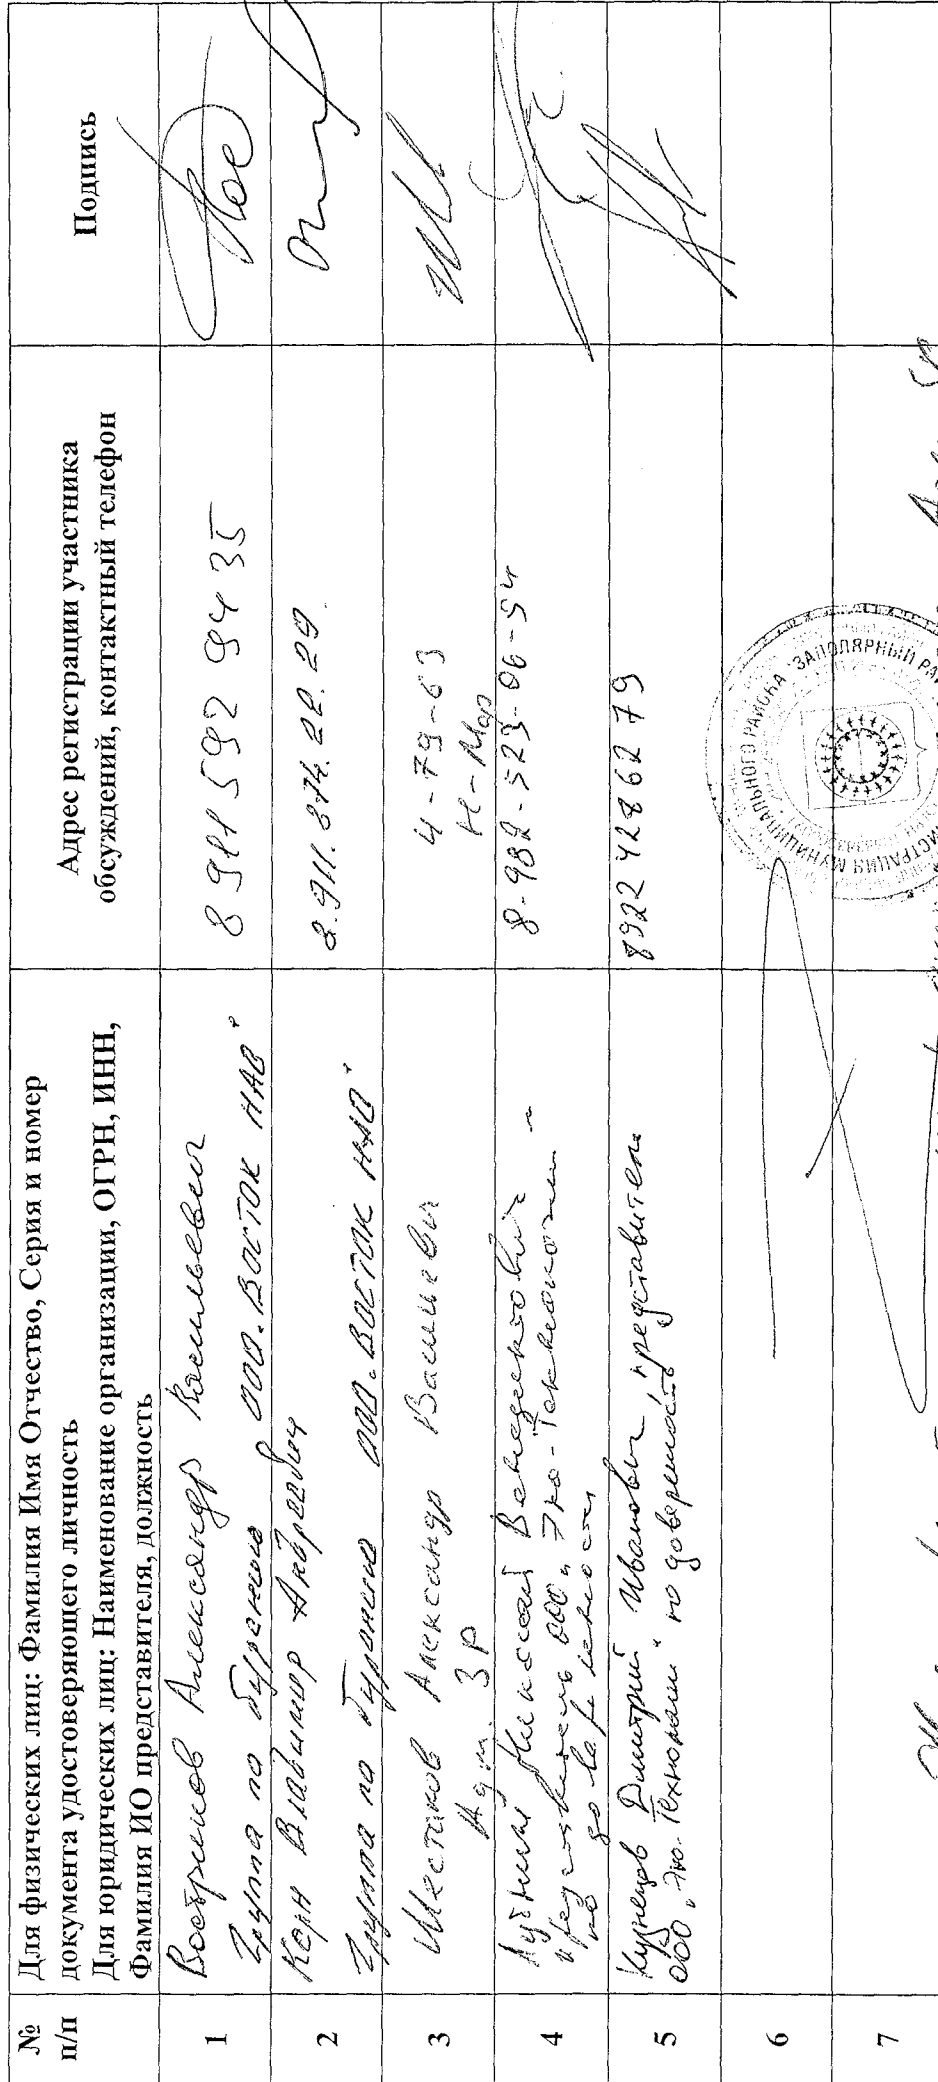 №
п/п
Для физических лиц: Фамилия Имя Отчество, Серия и номер
документа удостоверяющего личность
Для юридических лиц: Наименование организации, ОГРН, ИНН,
Фамилия ИО представителя, должность
Адрес регистрации участника
обсуждений, контактный телефон
Подпись
1
Востриков Александр Васильевич
Группа по бурению ООО "ВОСТОК НАО"
8 911 592 94 35
2
Корн Владимир Андреевич
Группа по бурению ООО "ВОСТОК НАО"
8.911.874.22.29.
3
Шестаков Александр
Адм. ЗР
4-79-63
Н-Мар
4
представитель ООО "Эко-Технологии"
по доверенности
8-982-523-06-54
5
Кузнецов Дмитрий Иванович представитель
ООО "Эко-Технологии" по доверенности
8922 4286279
6
7
МУНИЦИПАЛЬНОГО РАЙОНА